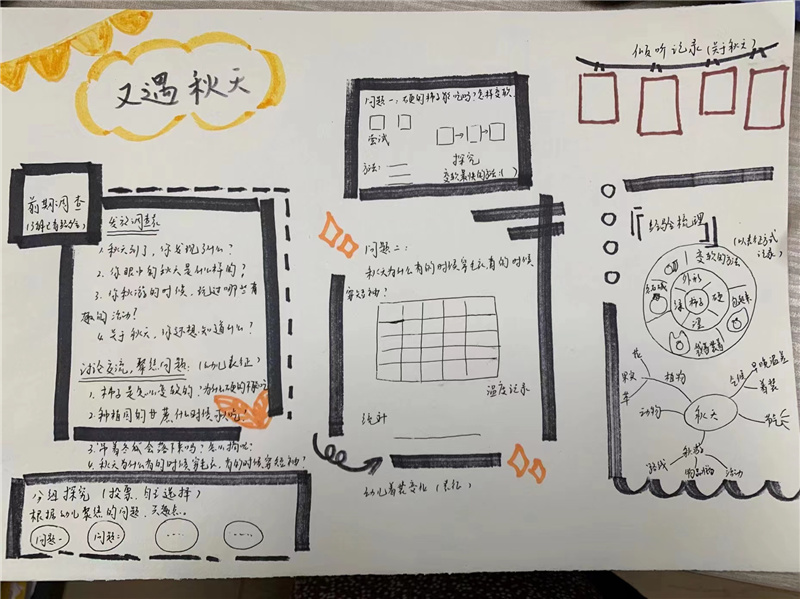 又遇秋天
前期调查
(了解已有经验)
发放调查表
1.秋天到了,你发现了什么?
2.你眼中的秋天是什么样的?
3.你秋游的时候,玩过哪些有
趣的活动?
4.关于秋天,你还想知道什么?
讨论交流,聚焦问题:(幼儿表征)
1.柿子是怎么变软的?为什么硬的
2.种植园的甘蔗什么时候
4.秋天为什么有的时候穿毛衣,有的时候穿短袖?
分组探究(投票,自主选择)
根据幼儿聚焦的问题,
问题一
问题二
……
……
问题一:硬的柿子能吃吗?怎样变软.
尝试
方法:
探究
变软最快的方法( )
问题二:
秋天为什么有的时候穿毛衣,有的时候
穿短袖?
温度记录
统计
幼儿着装变化(表征)
倾听记录(关于秋天)
经验梳理
(以表征方式
记录)
变软的方法
外形
柿子
硬
涩
花
果实
草
植物
动物
秋天
气候
早晚温差
着装
秋游
路线
物品准备
活动